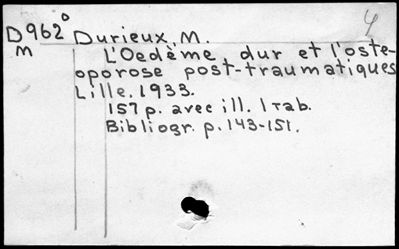 4
D962° Durieux, M.
M L'Oedème dur et l'oste-
oporose post-traumatiques
Lille. 1933.
157 p. avec ill. 1 rab.
Bibliogr. p. 143-151.